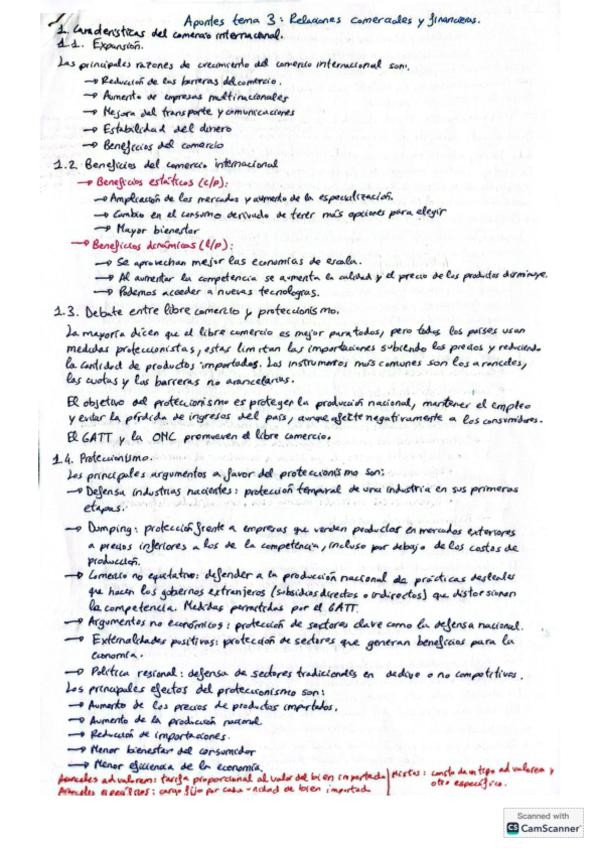 Apuntes tema 3: Relaciones comerciales y financieras.
1. Características del comercio internacional.
1.1. Expansión.
Las principales razones de crecimiento del comercio internacional son:
→ Reducción de las barreras del comercio.
→ Aumento de empresas multinacionales
→ Mejora del transporte y comunicaciones
→ Estabilidad del dinero
→ Beneficios del comercio
1.2. Beneficios del comercio internacional
→ Beneficios estáticos (c/p):
→ Ampliación de los mercados y aumento de la especialización.
→ Cambio en el consumo derivado de tener más opciones para elegir
→ Mayor bienestar
→ Beneficios dinámicos (l/p):
→ Se aprovechan mejor las economías de escala.
→ Al aumentar la competencia se aumenta la calidad y el precio de los productos disminuye.
→ Podemos acceder a nuevas tecnologías.
1.3. Debate entre libre comercio y proteccionismo.
La mayoría dicen que el libre comercio es mejor para todos, pero todos los países usan
medidas proteccionistas, estas limitan las importaciones subiendo los precios y reduciendo
la cantidad de productos importados. Los instrumentos más comunes son los aranceles,
las cuotas y las barreras no arancelarias.
El objetivo del proteccionismo es proteger la producción nacional, mantener el empleo
y evitar la pérdida de ingresos del país, aunque afecte negativamente a los consumidores.
El GATT y la OMC promueven el libre comercio.
1.4. Proteccionismo.
Los principales argumentos a favor del proteccionismo son:
→ Defensa industrias nacientes: protección temporal de una industria en sus primeras
etapas.
→ Dumping: protección frente a empresas que venden productos en mercados exteriores
a precios inferiores a los de la competencia, incluso por debajo de los costas de
producción.
→ Comercio no equitativo: defender a la producción nacional de prácticas desleales
que hacen los gobiernos extranjeros (subsidios directos o indirectos) que distorsionan
la competencia. Medidas permitidas por el GATT.
→ Argumentos no económicos: protección de sectores clave como la defensa nacional.
→ Externalidades positivas: protección de sectores que generan beneficios para la
economía.
→ Política regional: defensa de sectores tradicionales en declive o no competitivos.
Los principales efectos del proteccionismo son:
→ Aumento de los precios de productos importados.
→ Aumento de la producción nacional
→ Reducción de importaciones.
→ Menor bienestar del consumidor
→ Menor eficiencia de la economía.
Aranceles ad valorem: tarifa proporcional al valor del bien importado | Mixtos: consta de un tipo ad valorem y
Aranceles específicos: cargo fijo por cada unidad de bien importado otro específico.
Scanned with
CS CamScanner